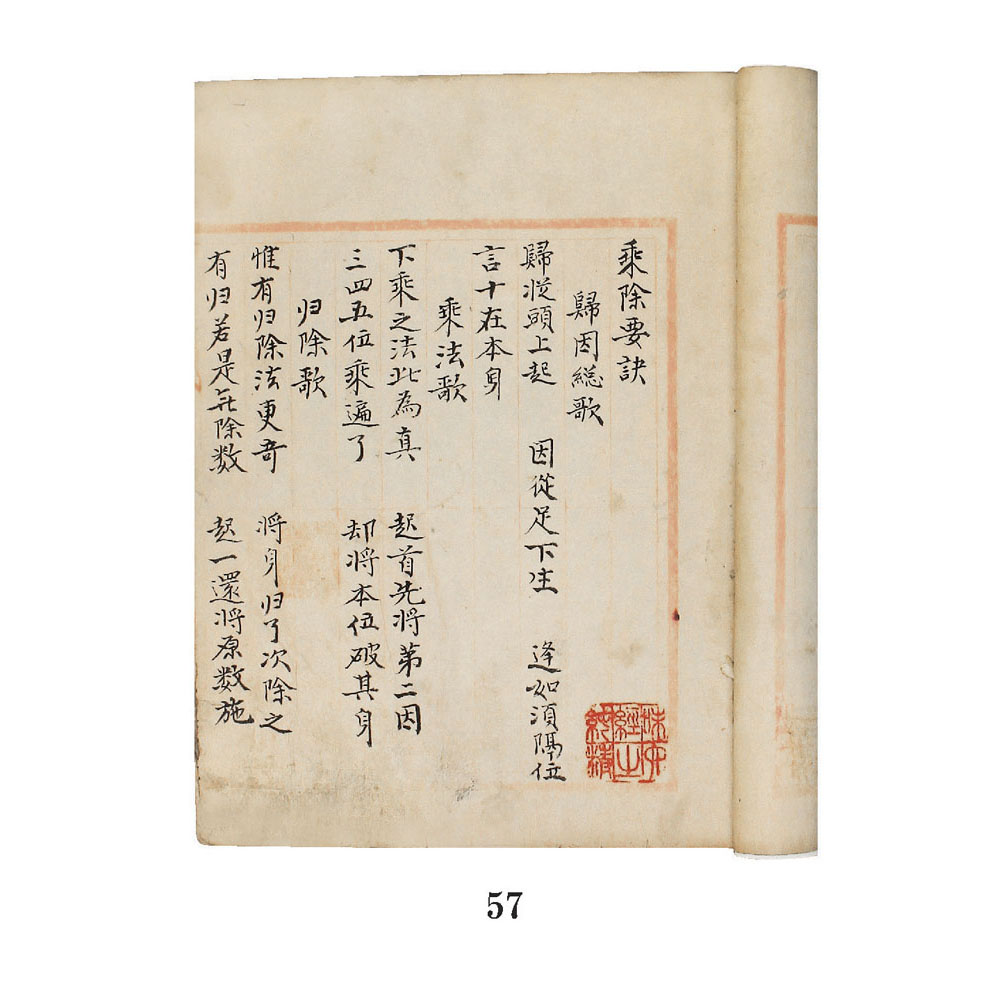 乘除要訣
歸因総歌
歸從頭上起　因從足下生　逢如須隔位
言十在本身
乘法歌
下乘之法此為真　起首先将第二因
三四五位乘遍了　却将本位破其身
归除歌
惟有归除法更奇　将身归了次除之
有归若是无除数　起一還将原数施
57